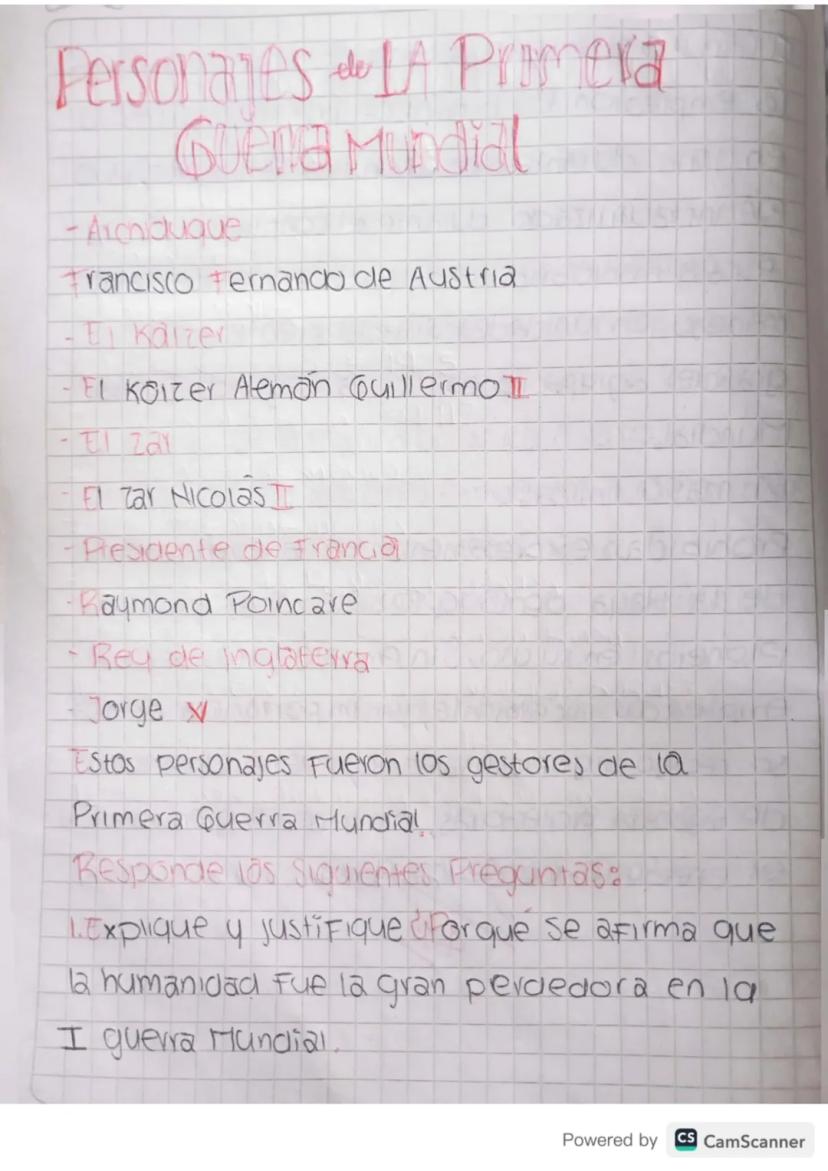 Personajes de LA Primera
Guerra Mundial
- Archiduque
Francisco Fernando de Austria
- El Kaizer
- El Káizer Alemán Guillermo II
- El Zar
- El zar Nicolás II
- Presidente de Francia
- Raymond Poincare
- Rey de inglaterra
- Jorge V
Estos personajes Fueron los gestores de la
Primera Guerra Mundial.
Responde las siguientes Preguntas:
1. Explique y justifique ¿Por qué se afirma que
la humanidad fue la gran perdedora en la
I guerra Mundial.
Powered by CS CamScanner